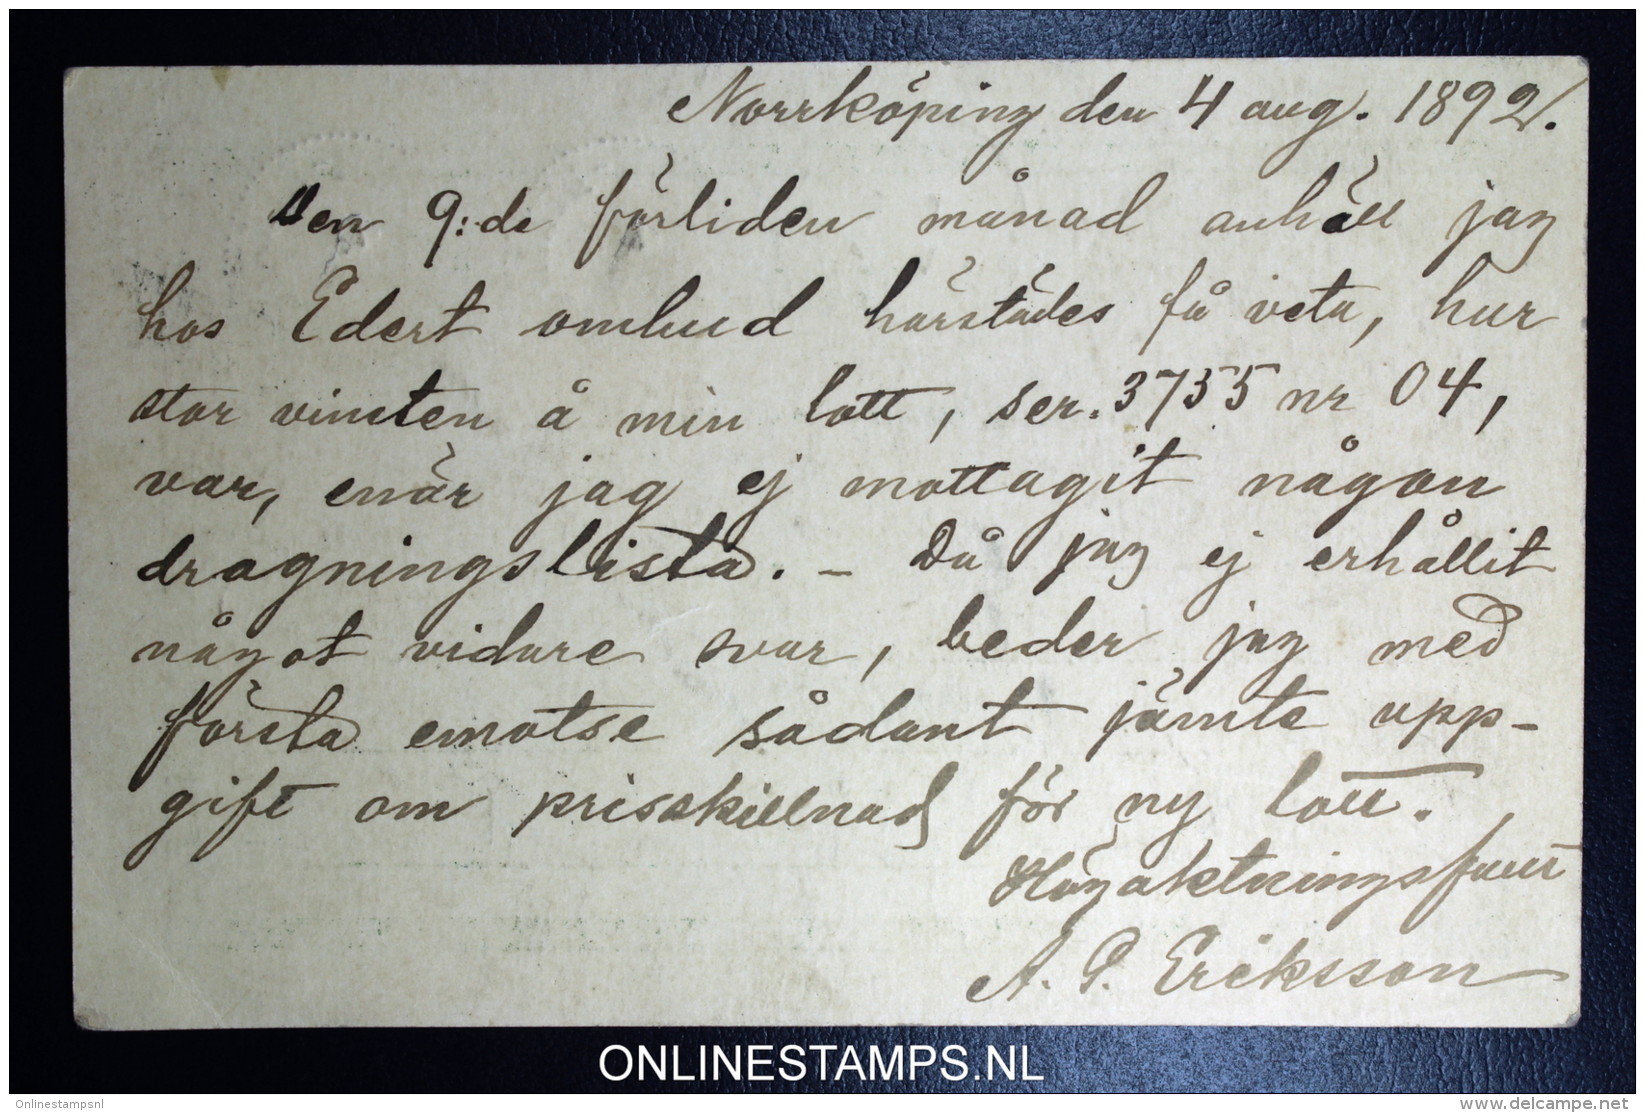 Norrköping den 4 aug. 1892.
Den 9:de förliden månad anhöll jag
hos Edert ombud härstädes få veta, hur
stor vinsten å min lott, ser. 3755 nr 04,
var, enär jag ej mottagit någon
dragningslista. – Då jag ej erhållit
något vidare svar, beder jag med
första emotse sådant jämte upp-
gift om prisskillnad för ny lott.
Högaktningsfullt
A. P. Eriksson
ONLINESTAMPS.NL
Onlinestampsnl
www.delcampe.net